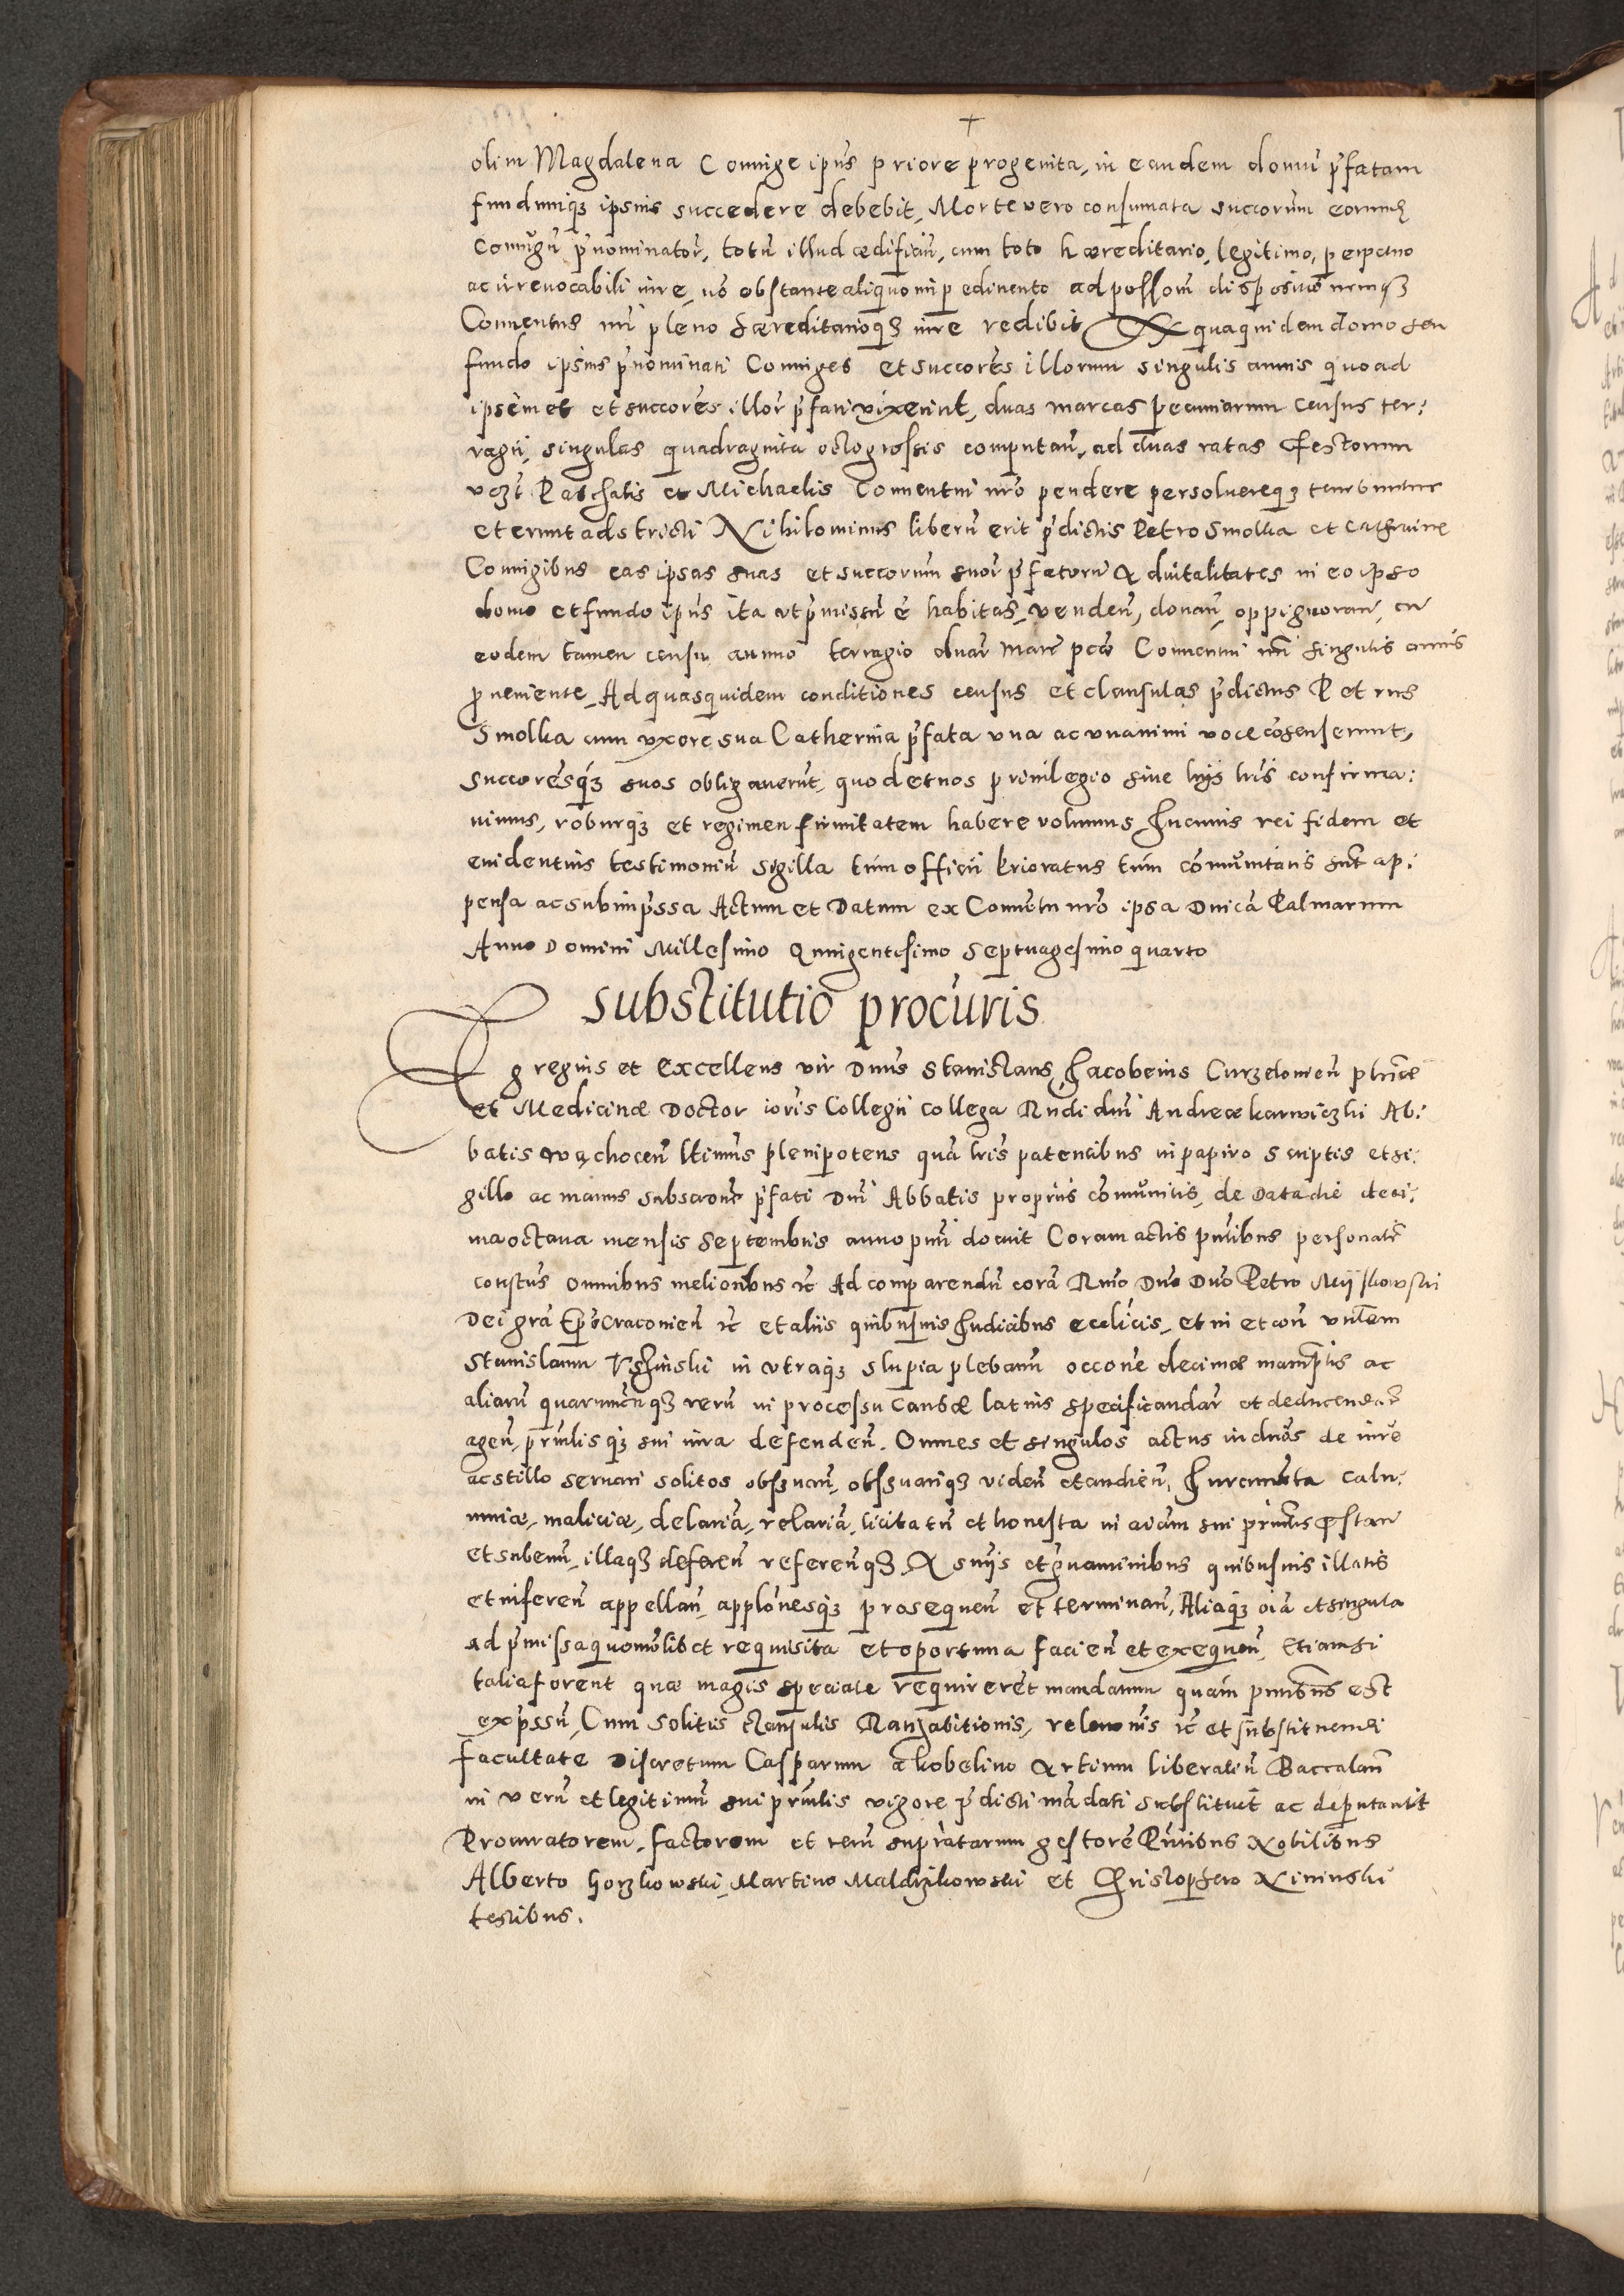 olim Magdalena Coniuge ipius priore progenita, in eandem domu pfatam
fundumqꝫ ipsius succedere debebit, Morte vero consumata succorum eorund
Coniugu pnominator, totu illud ædificiu, cum toto hæreditario, legitimo, perpetuo
ac irrevocabili iure, no obstante aliquo impedimento ad possom dispositionemqꝫ
Conuentus nri pleno hæreditarioqꝫ iure redibit Ex qua quidem domo seu
fundo ipsius pnominati Coniuges et succores illorum singulis annis quoad
ipsemet et succores illor pfati vixerint, duas marcas pecuniarum census ter:
ragii, singulas quadraginta octo grossis computan, ad duas ratas Festorum
vꝫt Paschatis et Michaelis Conuentui nro pendere persoluereqꝫ tenebuntur
et erunt adstricti Nihilominus liberu erit pdictis Petro Smolka et Catherine
Coniugibus eas ipsas suas et succorum suor pfatoru &c vitalitates in eo ipso
domo et fundo ipius ita vt pmissu e habitas, venden, donan, oppignoran, cu
eodem tamen censu annuo terragio duar marc pcæ Conuentui nri singulis annis
proueniente, Ad quas quidem conditiones census et clausulas pdictus Petrus
Smolka cum vxore sua Catherina pfata vna ac vnanimi voce cosenserunt,
succoresqꝫ suos obligauerut, quod et nos priuilegio siue hijs lris confirma:
uimus, roburqꝫ et regimen firmitatem habere volumus In cuius rei fidem et
euidentius testimoniu sigilla tum officii Prioratus tum comunitatis sunt ap:
pensa ac subimpssa Actum et Datum ex Conuetu nro ipsa Dnica Palmarum
Anno Domini Millesimo Quingentesimo Septuagesimo quarto
Substitutio procuris
Egregius et Excellens vir Dnus Stanislaus Jacobeius Curzelouien phiæ
et Medicinæ Doctor ioris Collegii Collega Rndi dni Andreæ karwiczki Ab:
batis wachocen ltimus plenipotens qua lris patentibus in papiro scriptis et si:
gillo ac manus subscrone pfati Dni Abbatis propriis comunitis, de Data die deci:
ma octaua mensis Septembris anno pnti docuit Coram actis pntibus personalr
constus omnibus melioribus rc Ad comparendu cora Rmo Dno Dno Petro Miiskowski
Dei gra Epo Craconien rc et aliis quibusuis Judicibus ecclicis, et in et con vnlem
Stanislaum Vshinski in vtraqꝫ slupia plebanu occone decimæ manplis ac
aliaru quarumcuqꝫ reru in processu causæ latius specificandar et deducendar
agen, prinlisqꝫ sui iura defenden. Omnes et singulos actus iudicios de iure
ac stillo seruari solitos obseruan, obseruariqꝫ viden et audien, Juramenta calu:
mniæ, maliciæ, delaria, relaria, licita tn et honesta in aiam sui prinlis prestan
et subeun, illaqꝫ deferen referenqꝫ A sniis et grauaminibus quibusuis illatis
et inferen appellan, applonesqꝫ prosequen et terminan, Aliaqꝫ oia et singula
ad pmissa quomolibet requisita et oportuna facien et exequen, Etiamsi
talia forent quæ magis speciale requireret mandatum quam pntibus est
expssu, Cum solitis clausulis Ratihabitionis, releuonis rc et substituendi
facultate Discretum Casparum a kobelino Artium liberaliu Baccalaur
in veru et legitimu sui prinlis vigore pdicti madati substituit ac deputauit
Procuratorem, factorem et reru supratarum gestore Pntibus Nobilibus
Alberto Gorzkowski, Martino Maldrzikowski et Christophero Nininski
testibus.